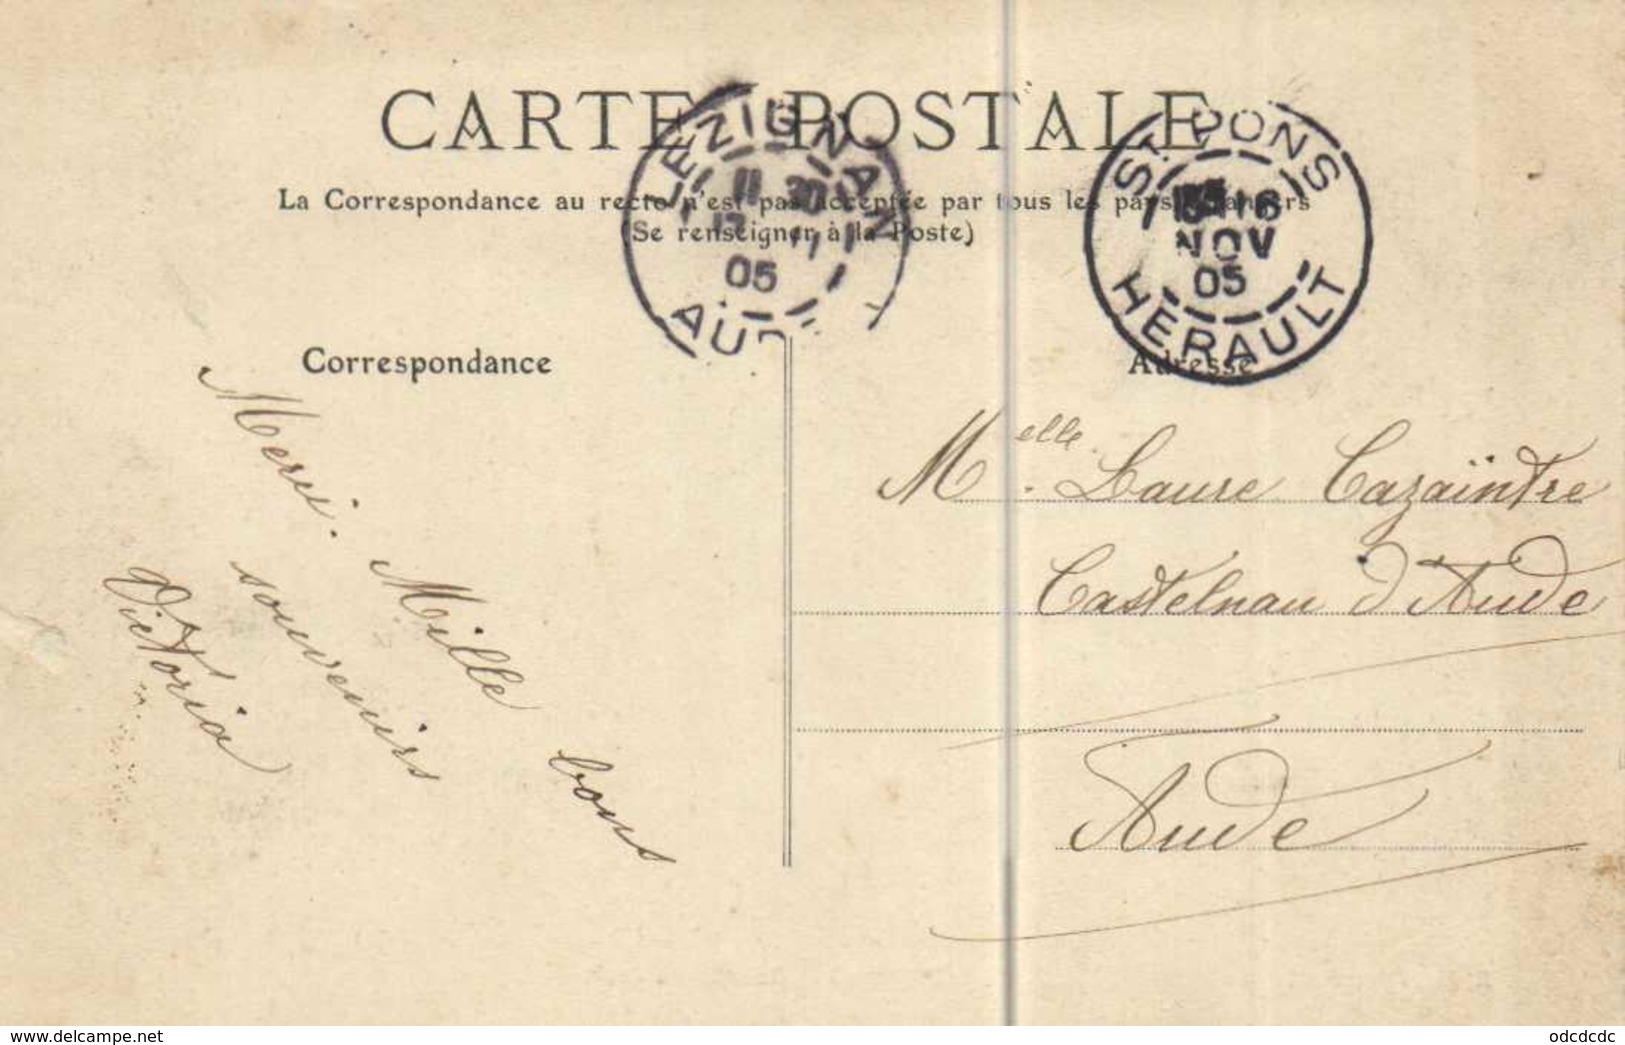 CARTE POSTALE
La Correspondance au recto n'est pas acceptée par tous les pays étrangers
(Se renseigner à la Poste)
LEZIGNAN
11 30
05
AUDE
ST PONS
16
NOV
05
HERAULT
Correspondance
Adresse
Merci. Mille bons
souvenirs
Victoria
Melle. Laure Cazaïntre
Castelnau d'Aude
Aude
www.delcampe.net
odcdcdc